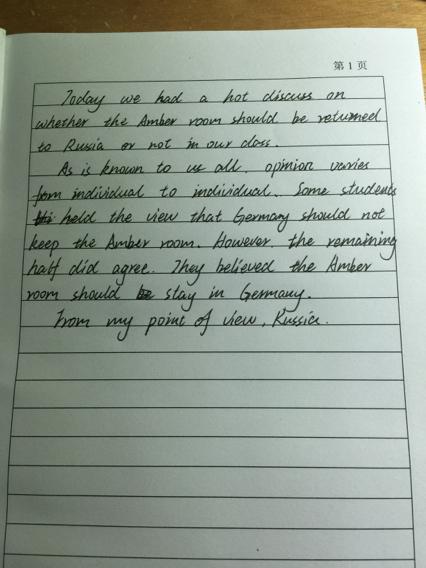 第1页
Today we had a hot discuss on
whether the Amber room should be returned
to Russia or not in our class.
As is known to us all, opinion varies
from individual to individual. Some students
held the view that Germany should not
keep the Amber room. However, the remaining
half did agree. They believed the Amber
room should stay in Germany.
From my point of view, Russia.